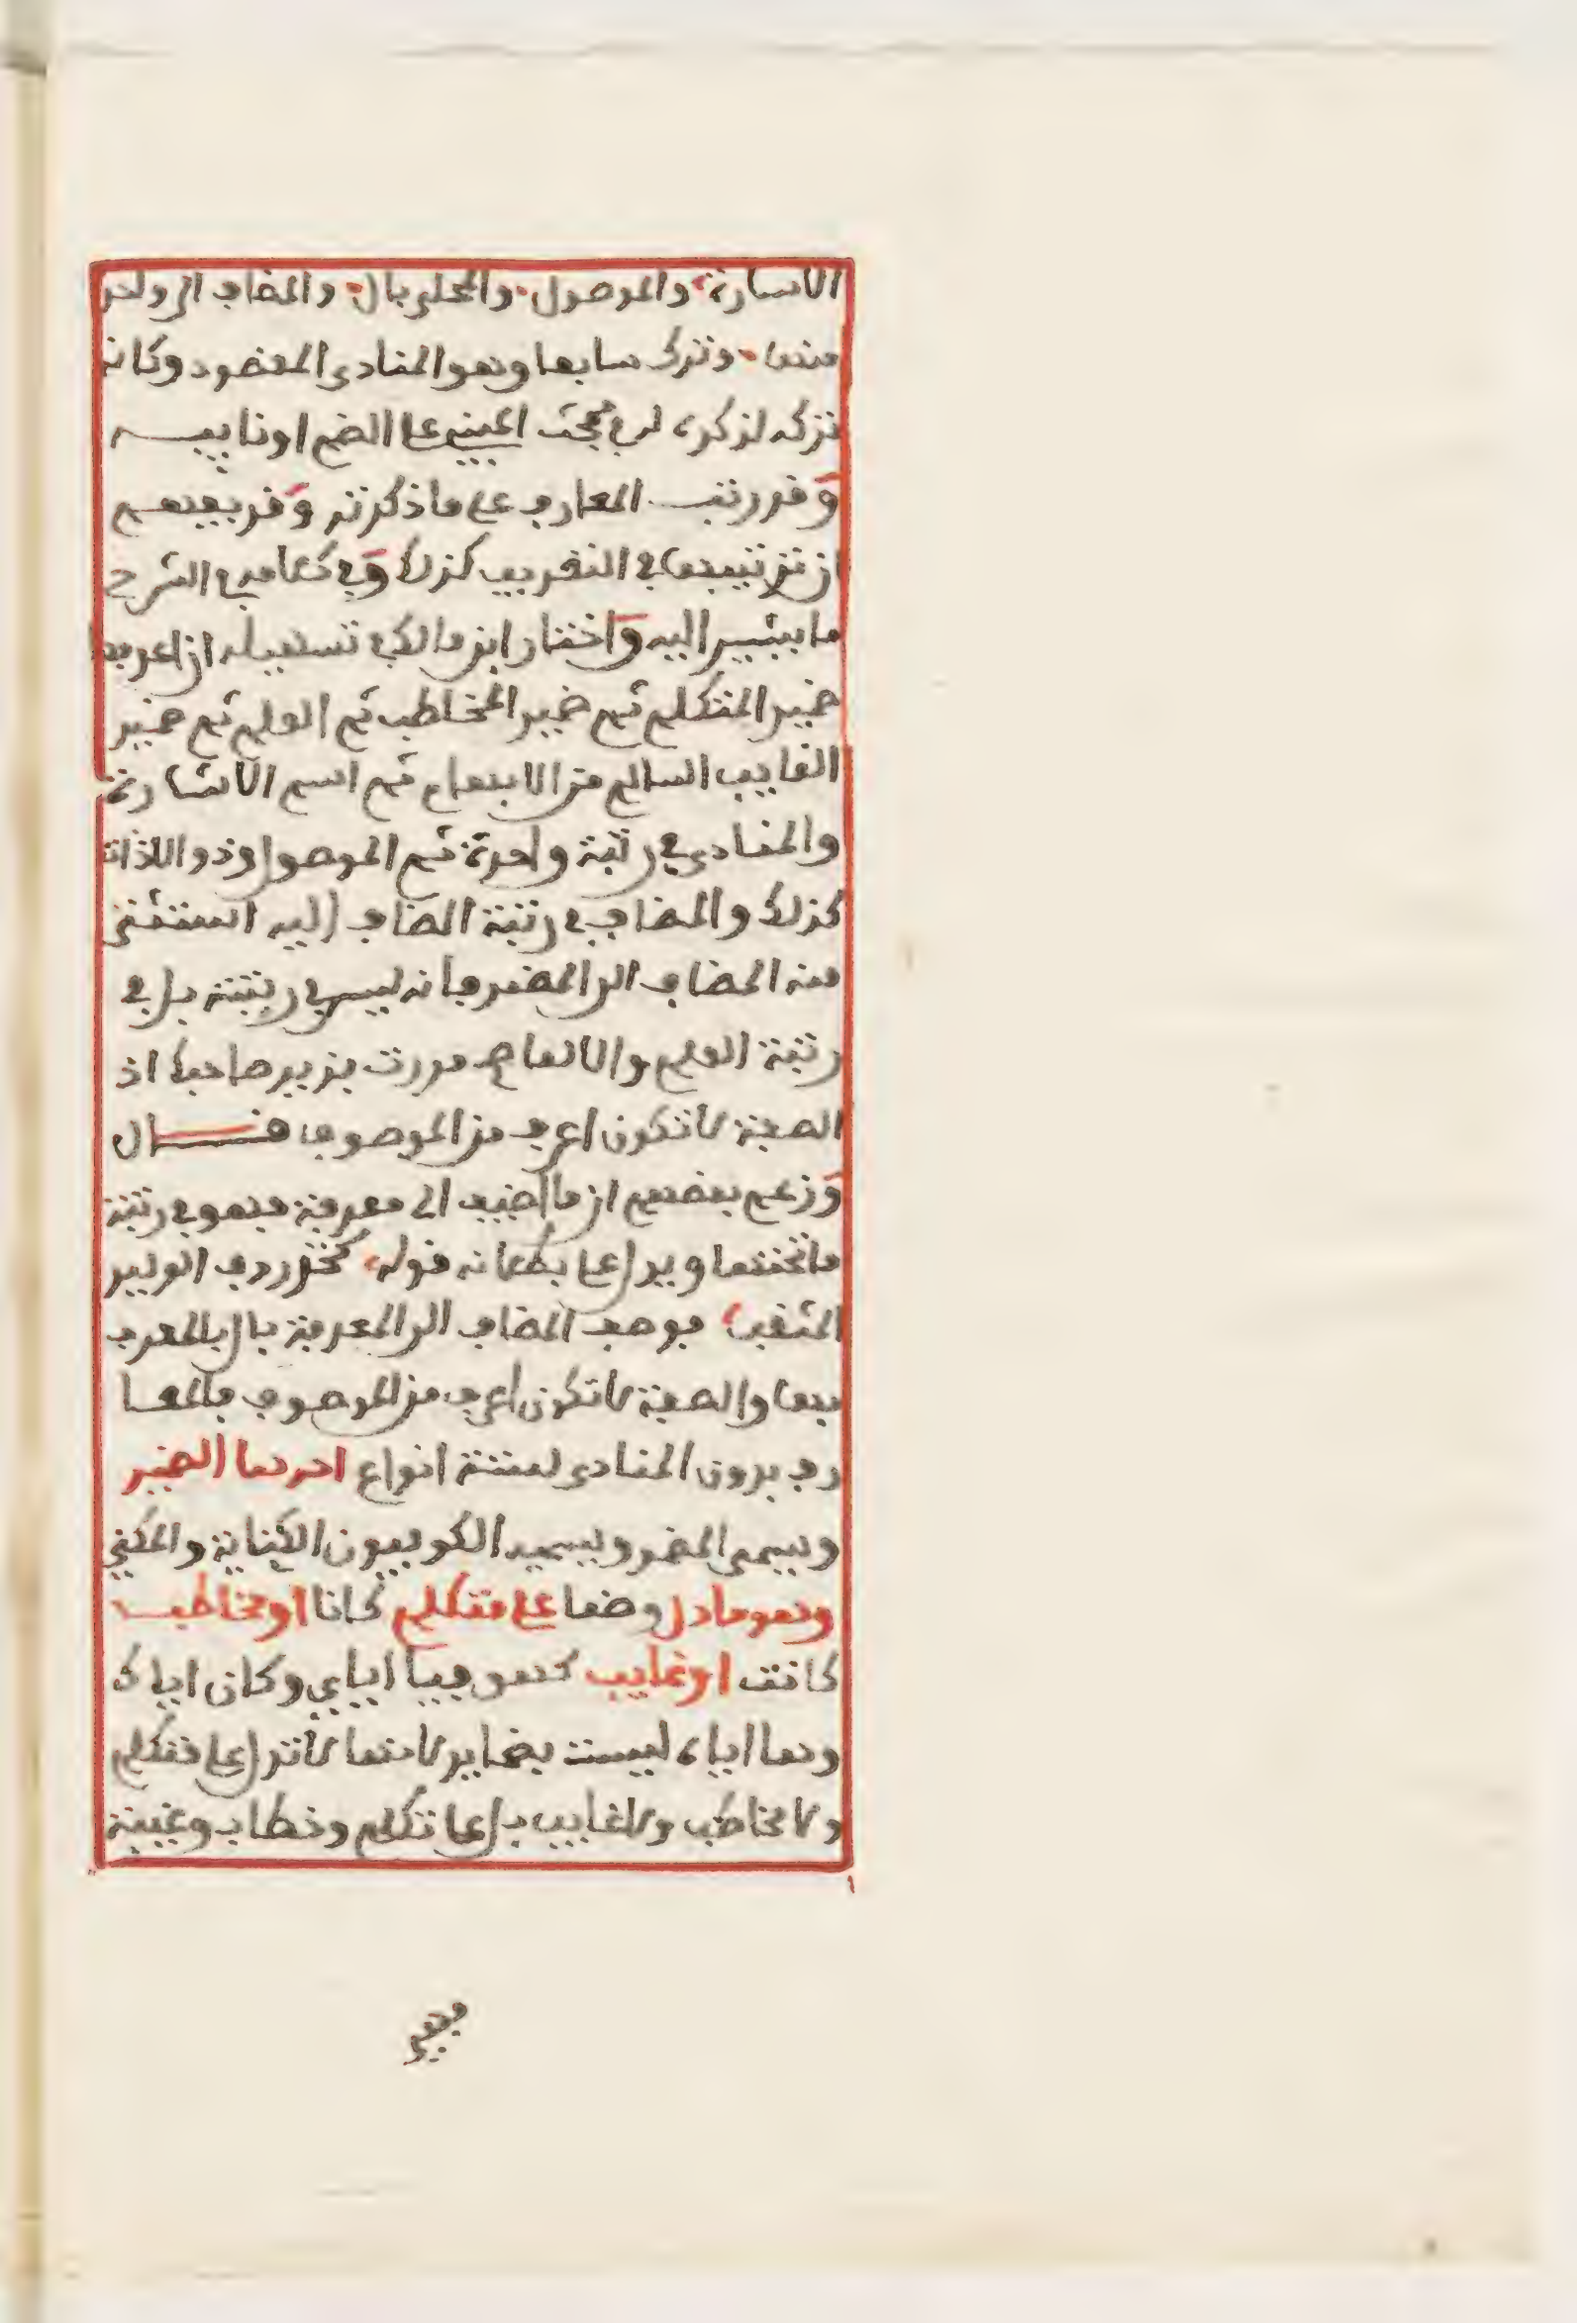 الاشارة والموصول والمحلى بال والمضاف الى واحد
منها وترك سابعا وهو المنادى المقصود وكانه
تركه لذكره له في مبحث المبني على الضم او نايبه
وقد رتب المعارف على ما ذكرته وقد يفهم
ان ترتيبها في التعريف كذلك وفي كلامه في الشرح
ما يشير اليه واختار ابن مالك في تسهيله ان اعرفها
ضمير المتكلم ثم ضمير المخاطب ثم العلم ثم ضمير
الغايب السالم من الابهام ثم اسم الاشارة
والمنادى في رتبة واحدة ثم الموصول وذو الاداة
كذلك والمضاف في رتبة المضاف اليه استثنى
منه المضاف الى المضمر فانه ليس في رتبته بل في
رتبة العلم والا لما صح مررت بزيد صاحبك اذ
الصفة لا تكون اعرف من الموصوف قال
وزعم بعضهم ان ما اضيف الى معرفة فهو في رتبة
ما تحتها ويدل على بطلانه قوله كخذروف الوليد
المثقب فوصف المضاف الى المعرفة بال بالمعرف
بها والصفة لا تكون اعرف من الموصوف فالمعا
رف بدون المنادى لستة انواع احدها الضمير
ويسمى المضمر ويسميه الكوفيون الكناية والمكني
وهو ما دل وضعا على متكلم كانا او مخاطب
كانت او غايب كهو فيا اياي وكان اياك
وها اياه ليست بضماير لانها لا تدل على متكلم
ولا مخاطب ولا غايب بل على تكلم وخطاب وغيبة